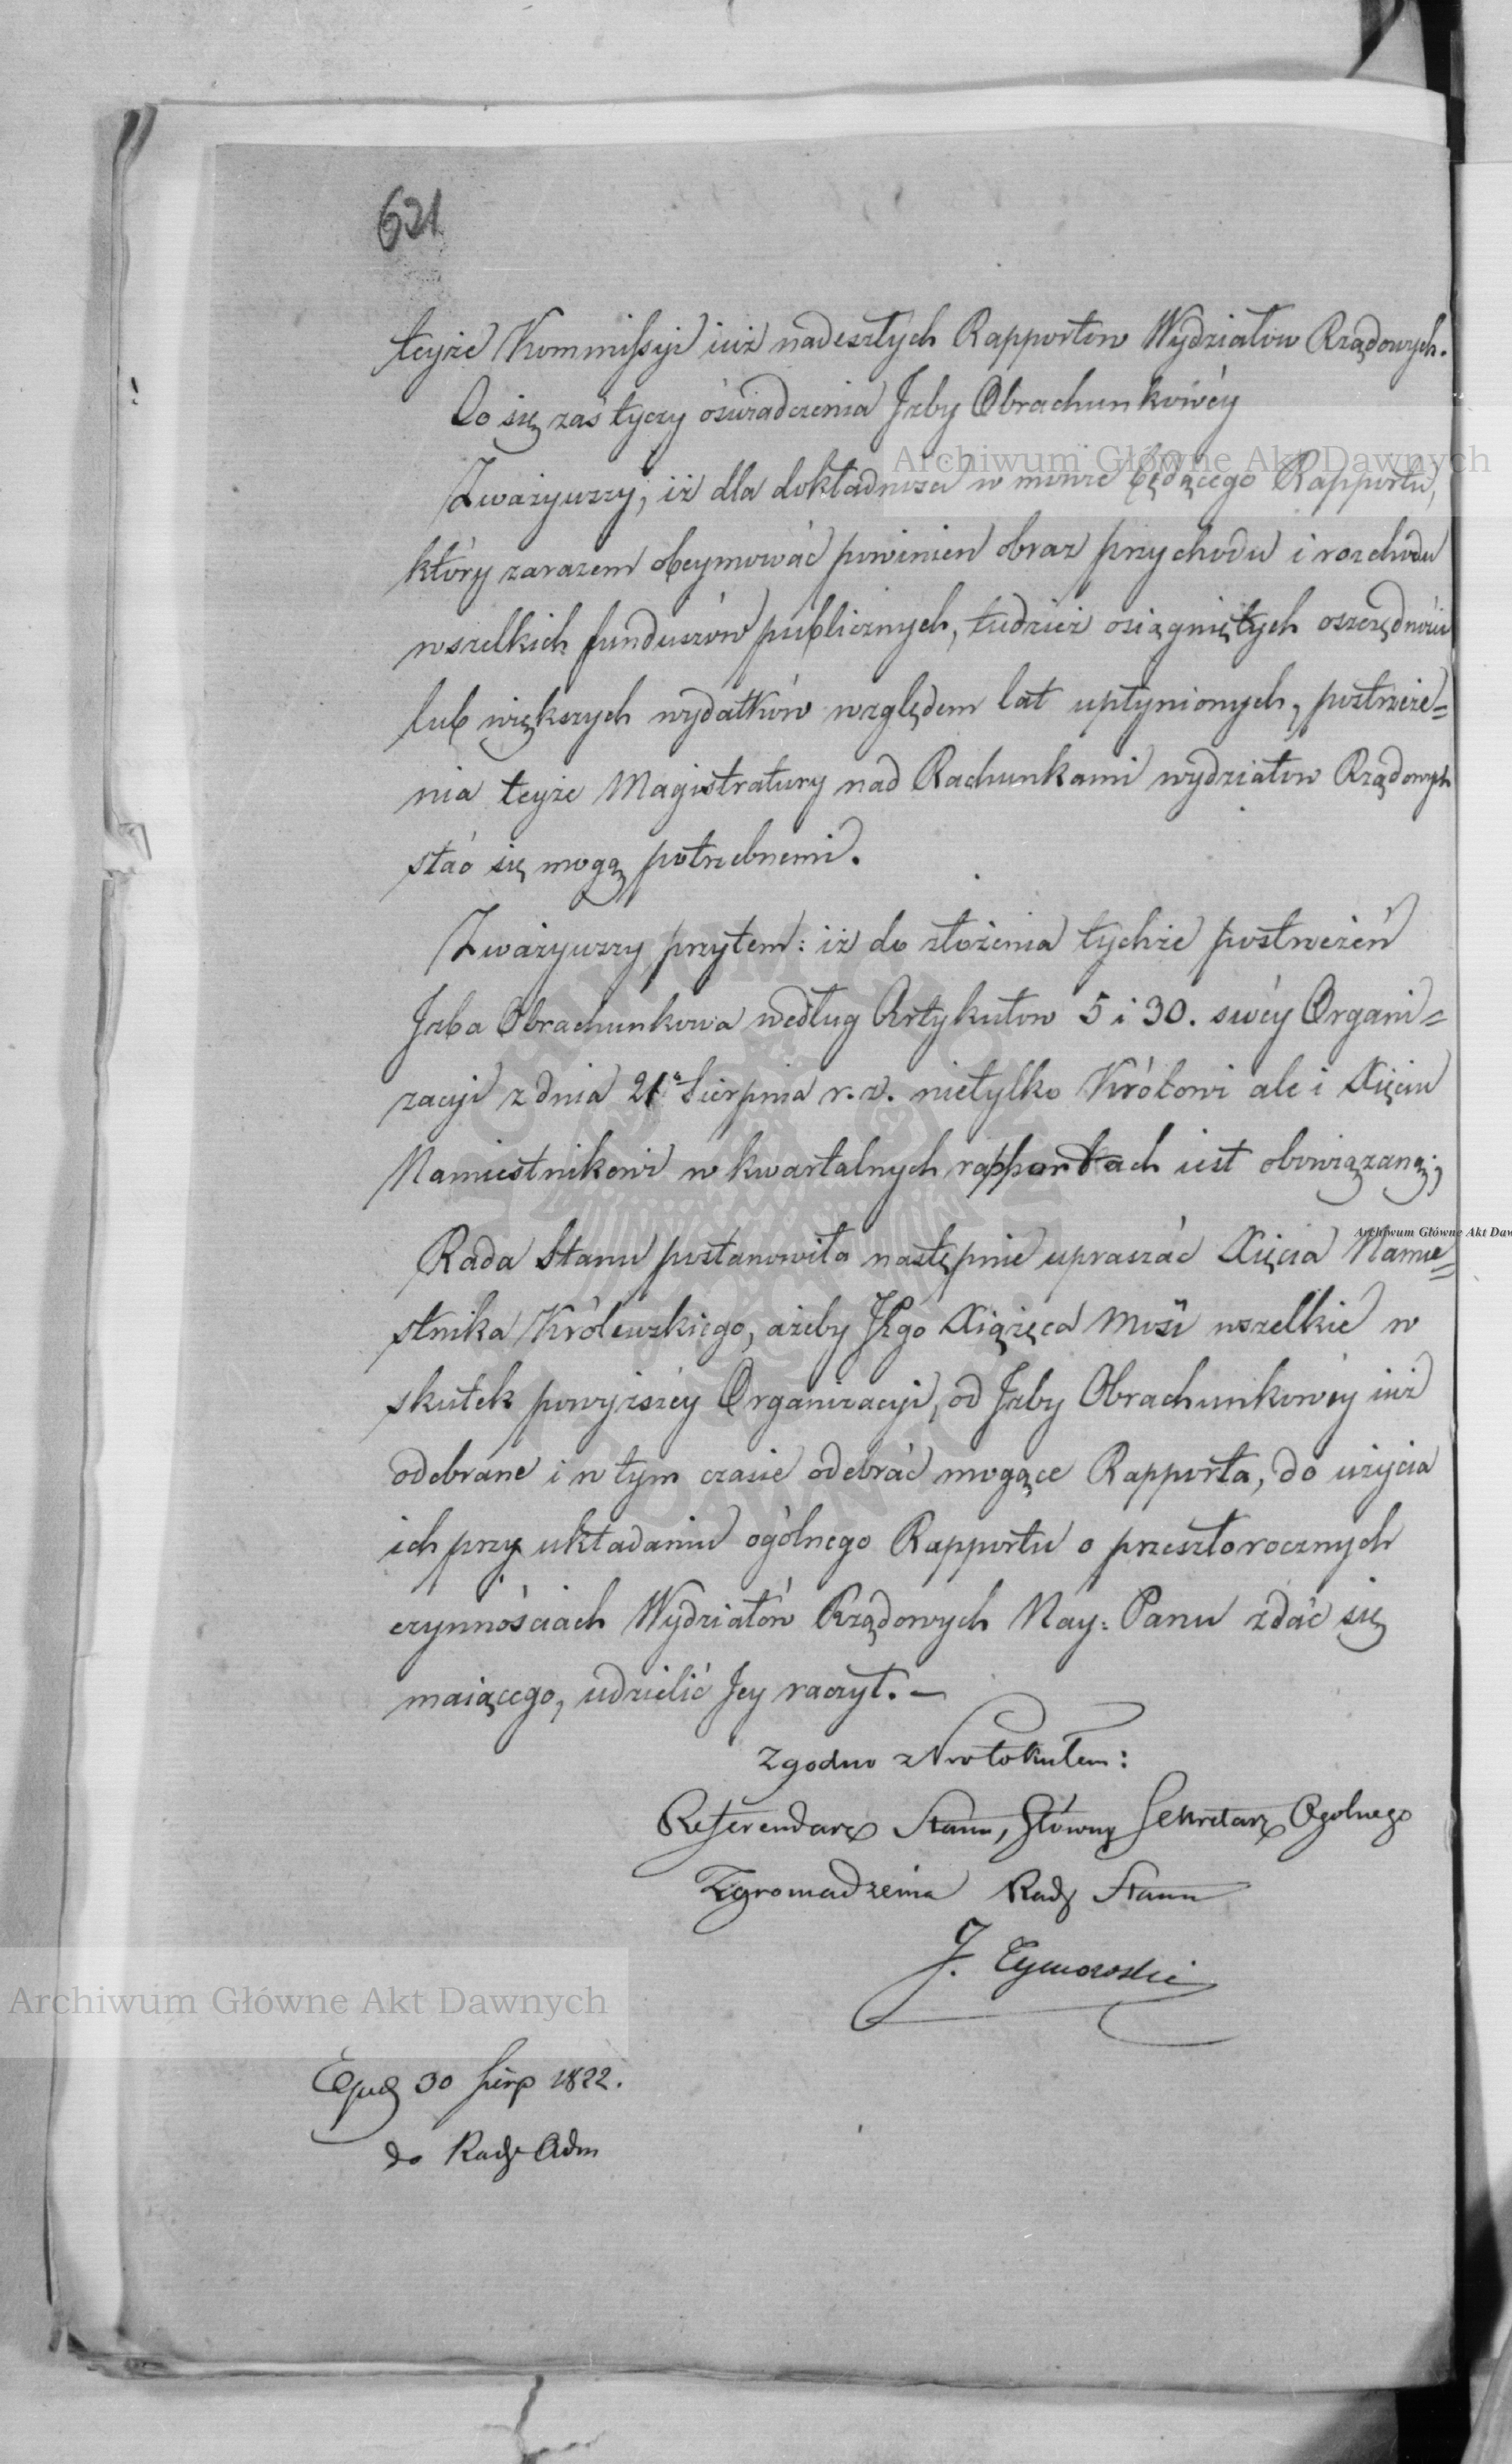 621
teyże Kommissyi iuż nadeszłych Rapportow Wydziałow Rządowych.
Co się zaś tyczy oświadczenia Jzby Obrachunkowéy
Zważywszy, iż dla dokładności w mowie będącego Rapportu,
który zarazem obeymować powinien obraz przychodu i rozchodu
wszelkich funduszów publicznych, tudzież osiągniętych oszczędności
lub większych wydatków względem lat upłynionych, postrzeże=
nia teyże Magistratury nad Rachunkami wydziałow Rządowych
stać się mogą potrzebnemi.
Zważywszy przytem: iż do złożenia tychże postrzeżeń
Jzba Obrachunkowa według Artykułow 5 i 30. swéy Organi=
zacyi z dnia 21 Sierpnia r. z. nietylko Królowi ale i Xięciu
Namiestnikowi w kwartalnych rapportach iest obowiązaną;
Rada Stanu postanowiła następnie upraszać Xięcia Namie=
stnika Królewskiego, ażeby JEgo Xiążęca Mość wszelkie w
skutek powyższéy Organizacyi, od Jzby Obrachunkowéy iuż
odebrane i w tym czasie odebrać mogące Rapporta, do użycia
ich przy układaniu ogólnego Rapportu o przeszłorocznych
czynnościach Wydziałów Rządowych Nay: Panu zdać się
maiącego, udzielić Jey raczył. —
Zgodno z Protokułem:
Referendarz Stanu, Główny Sekretarz Ogolnego
Zgromadzenia Rady Stanu
J. Tymowski
30 Sierp 1822.
do Rady Adm
Archiwum Główne Akt Dawnych
Archiwum Główne Akt Dawnych
Archiwum Główne Akt Daw